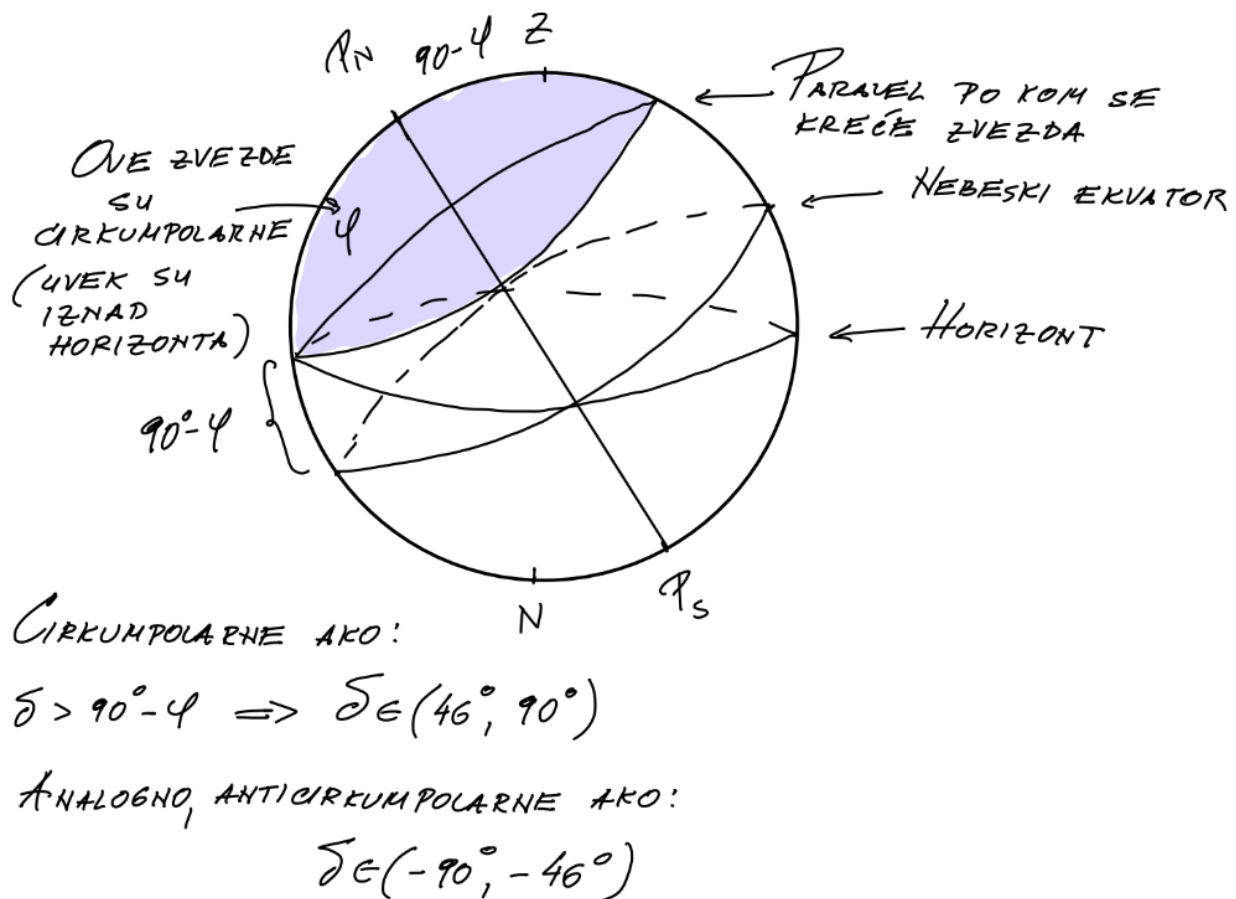 P_N 90-φ Z
PARALEL PO KOM SE
KREĆE ZVEZDA
OVE ZVEZDE
SU
CIRKUMPOLARNE
(UVEK SU
IZNAD
HORIZONTA)
φ
NEBESKI EKVATOR
HORIZONT
90°-φ
N
P_S
CIRKUMPOLARNE AKO:
δ > 90°-φ => δ∈(46°, 90°)
ANALOGNO, ANTICIRKUMPOLARNE AKO:
δ∈(-90°, -46°)